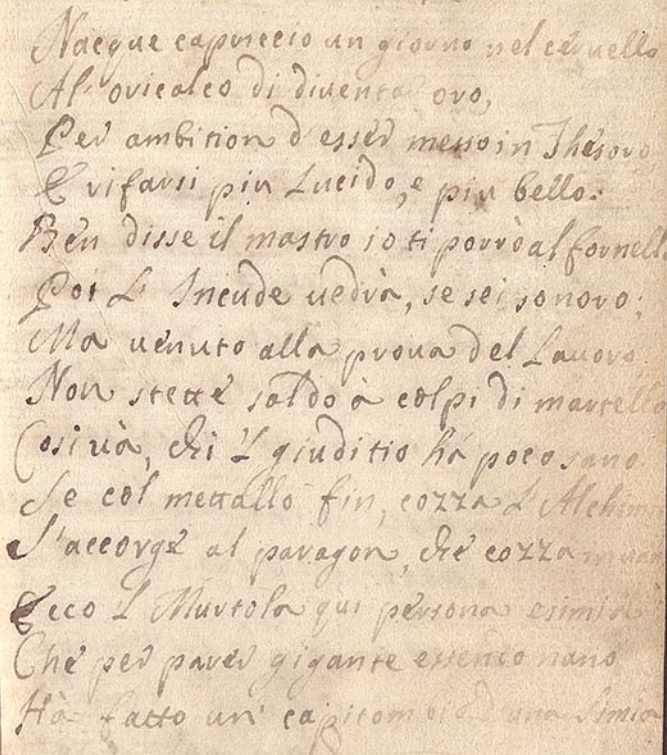 Nacque capriccio un giorno nel cervello
Al' oricalco di diventar oro,
Per ambition d'esser messo in Thesoro,
E rifarsi piu Lucido, e piu bello.
Ben disse il mastro io ti porrò al fornello
Poi L' Incude uedrà, se sei sonoro;
Ma uenuto alla proua del Lauoro
Non stette saldo à colpi di martello
Cosi uà, chi 'L giuditio hà poco sano
Se col mettallo fin, cozza L' Alchimia
S'accorge al paragon, che cozza
Ecco 'L Murtola qui persona esimia
Che per parer gigante essendo nano
Hà fatto un' capitombolo d'una Simia